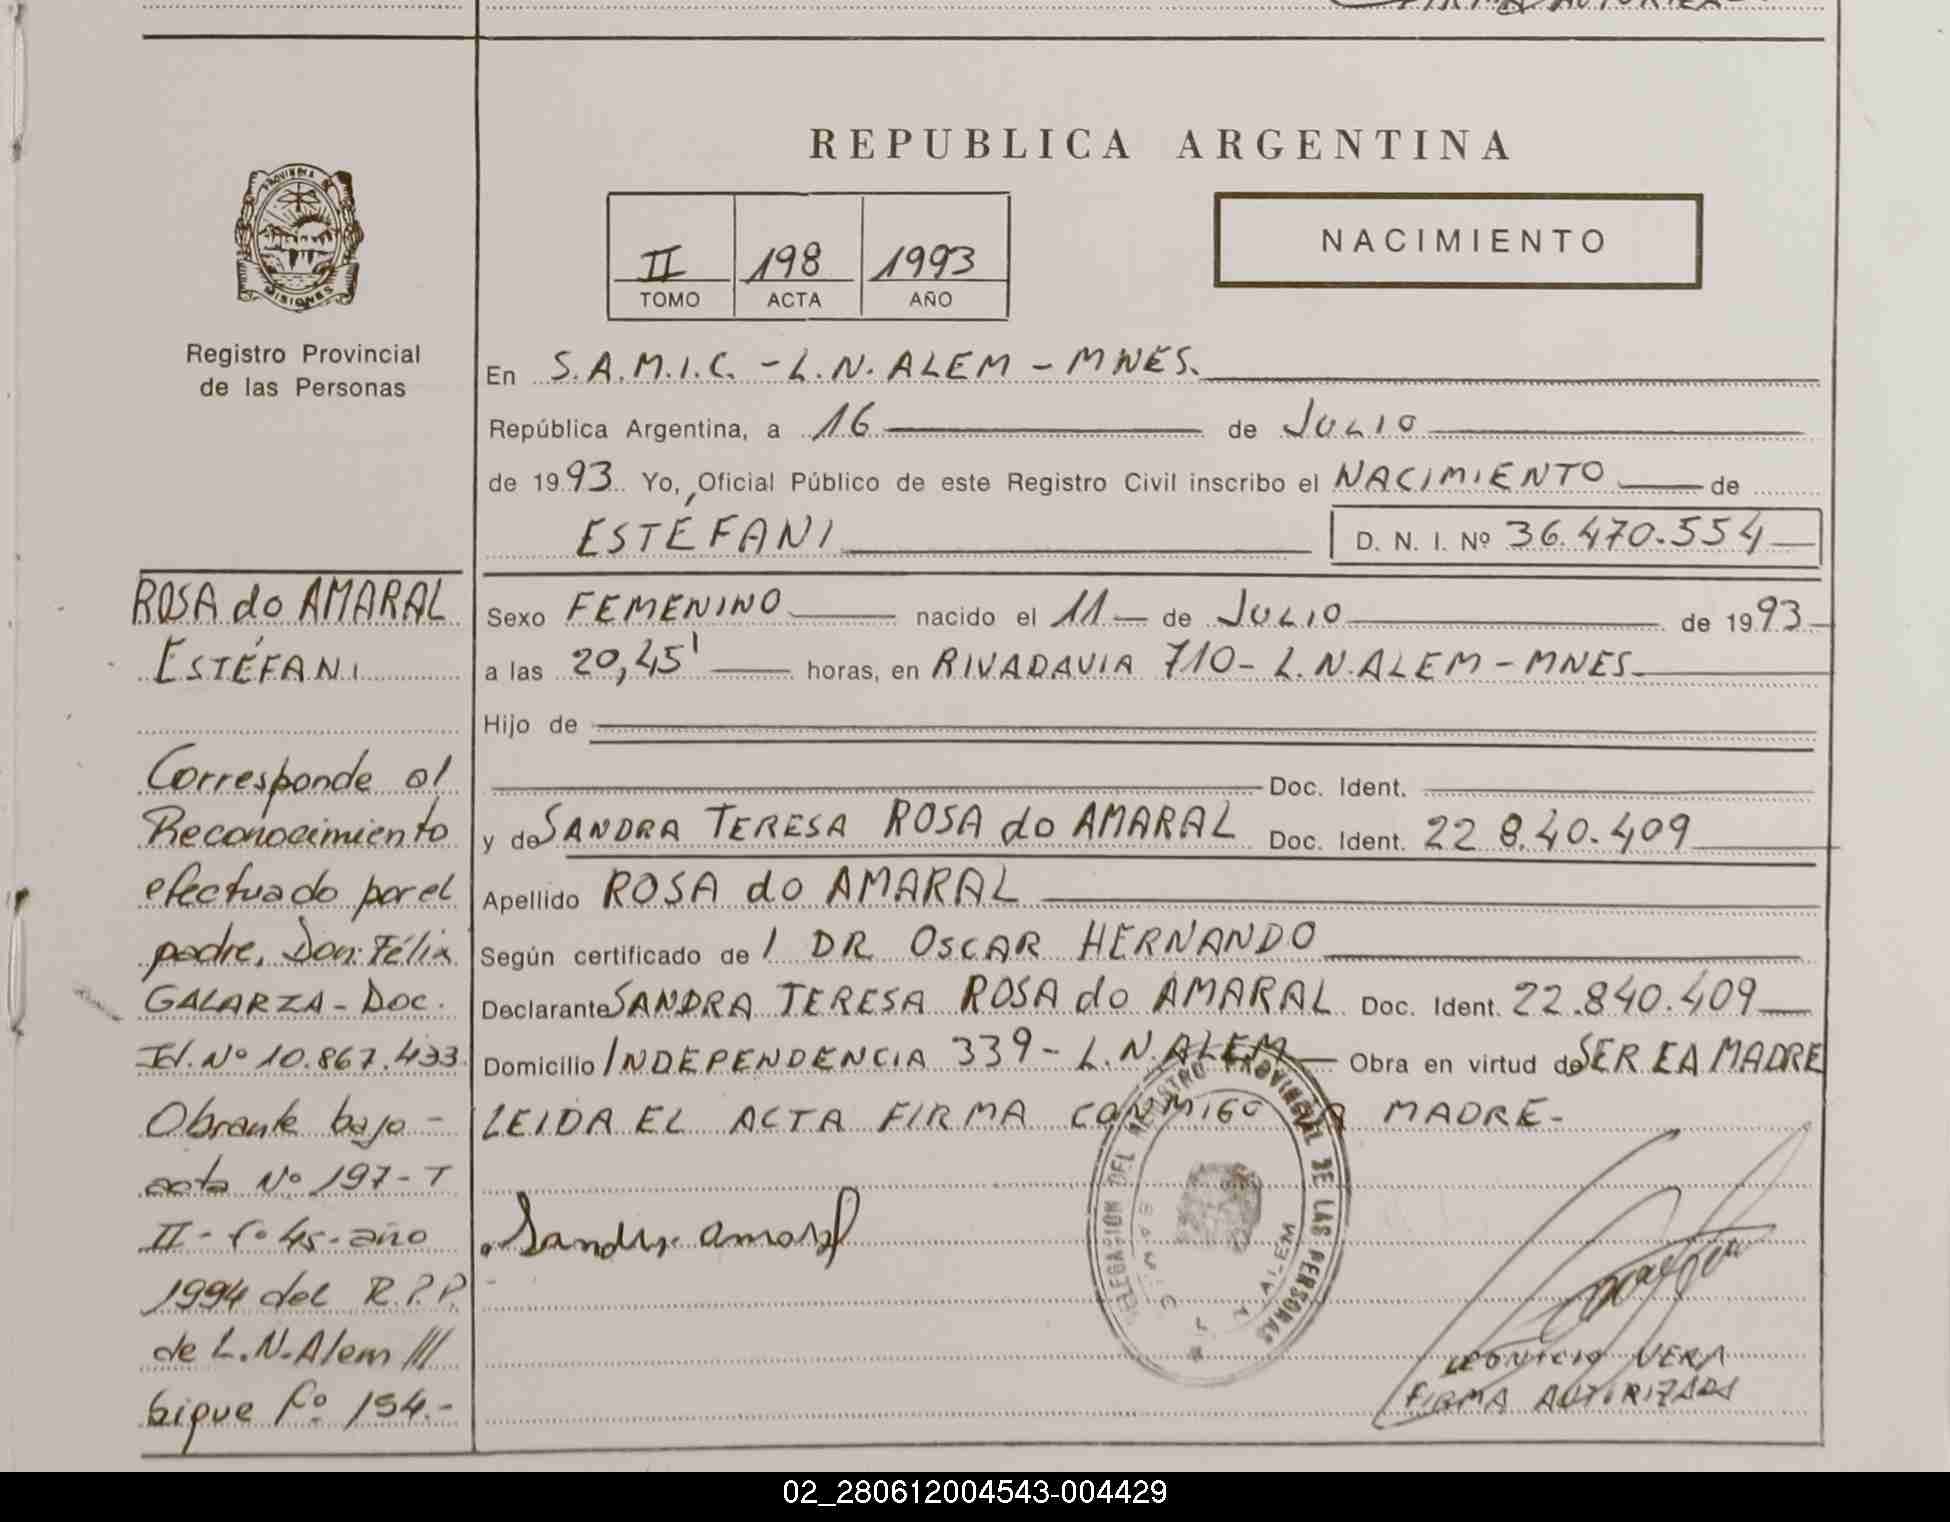 FIRMA AUTORIZA
REPUBLICA ARGENTINA
PROVINCIA DE
MISIONES
Registro Provincial
de las Personas
II 198 1993
TOMO ACTA AÑO
NACIMIENTO
En S.A.M.I.C. - L.N. ALEM - MNES.
República Argentina, a 16 de JULIO
de 1993 Yo, Oficial Público de este Registro Civil inscribo el NACIMIENTO de
ESTÉFANI D. N. I. Nº 36.470.554
Sexo FEMENINO nacido el 11 de JULIO de 1993
a las 20,45' horas, en RIVADAVIA 710 - L.N. ALEM - MNES.
Hijo de
Doc. Ident.
y de SANDRA TERESA ROSA do AMARAL Doc. Ident. 22.840.409
Apellido ROSA do AMARAL
Según certificado de l DR OSCAR HERNANDO
Declarante SANDRA TERESA ROSA do AMARAL Doc. Ident. 22.840.409
Domicilio INDEPENDENCIA 339 - L.N. ALEM Obra en virtud de SER LA MADRE
LEIDA EL ACTA FIRMA CONMIGO LA MADRE-
Sandra amaral
DELEGACION DEL REGISTRO PROVINCIAL DE LAS PERSONAS
L. N. ALEM
LEONICIO VERA
FIRMA AUTORIZADA
ROSA do AMARAL
ESTÉFANI
Corresponde al
Reconocimiento
efectuado por el
padre, Don: Félix
GALARZA - Doc.
Id. Nº 10.867.433
Obrante bajo -
acta Nº 197 - T
II - fº 45 - año
1994 del R.P.P.
de L.N. Alem ///
sigue fº 154.-
02_280612004543-004429